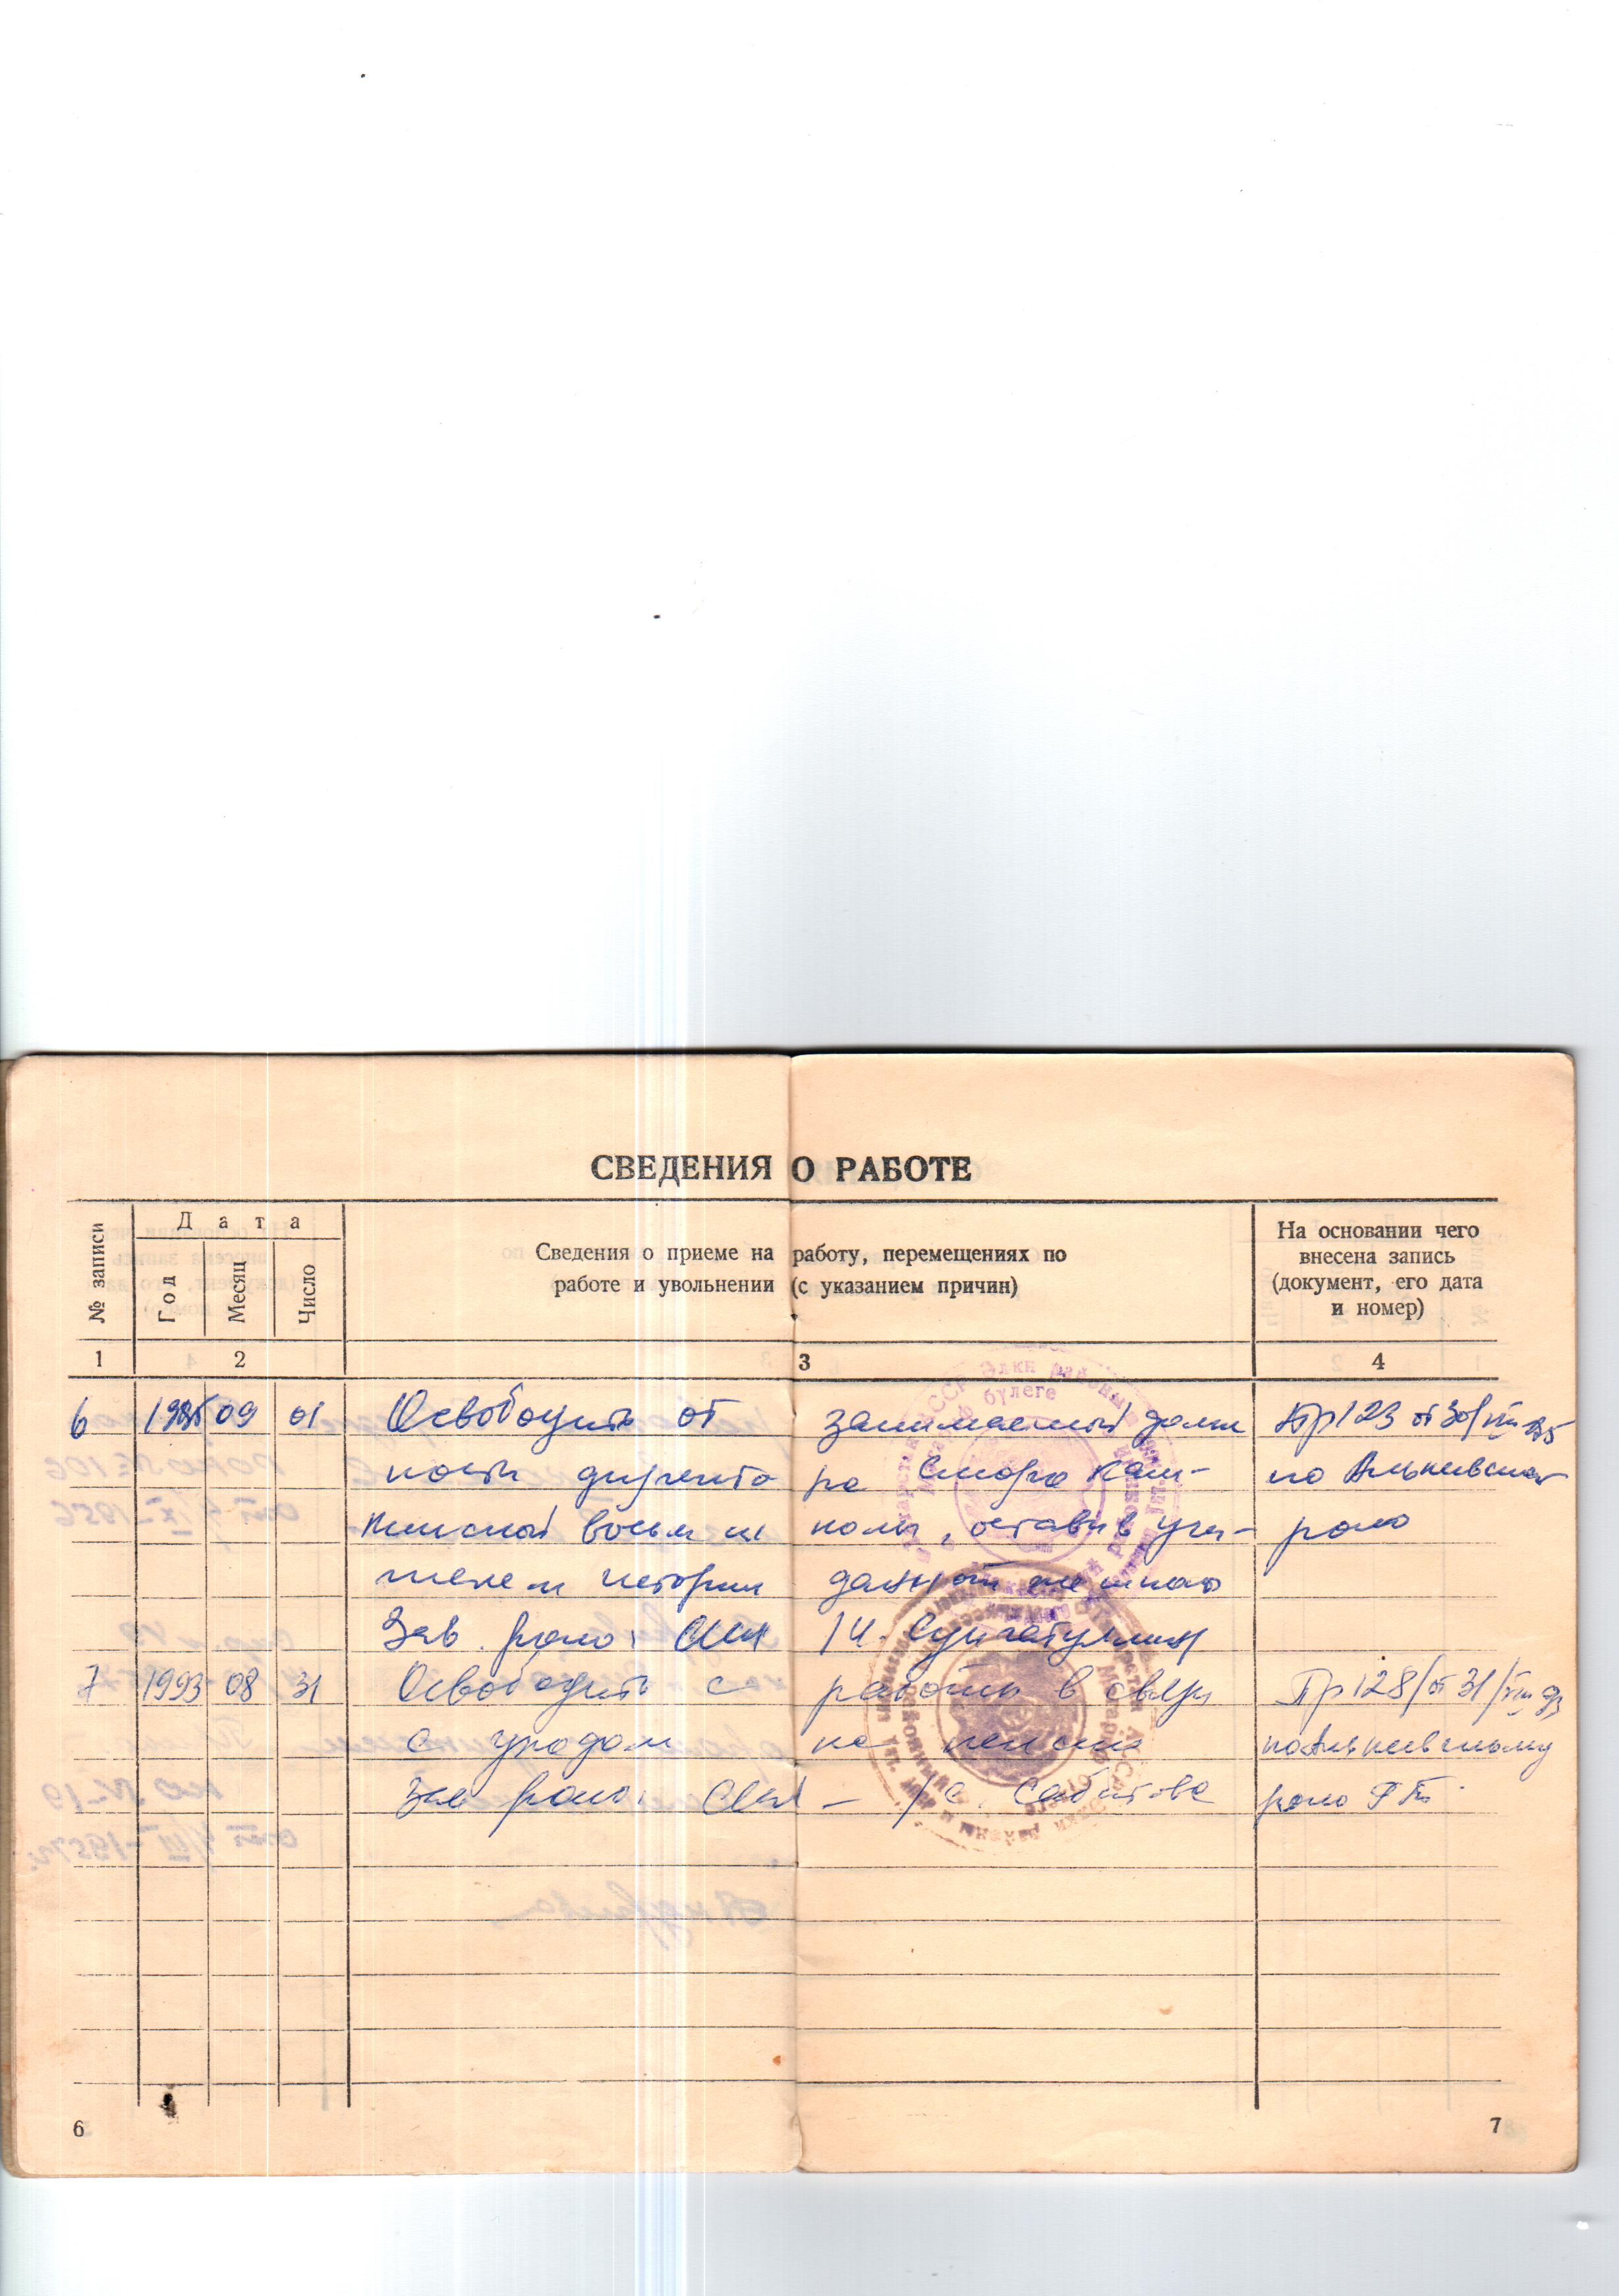 СВЕДЕНИЯ О РАБОТЕ
№ записи
Дата
Год
Месяц
Число
Сведения о приеме на работу, перемещениях по
работе и увольнении (с указанием причин)
На основании чего
внесена запись
(документ, его дата
и номер)
1 2 3 4
6 1985 09 01 Освободить от занимаемой долж Пр 123 от 30/VIII-85
ности директора Старо Кам- по Алькеевскому
кинской восьм ш колы, оставив учи- роно
телем истории данной же школы
Зав. роно: /И. Сунгатуллин/
7 1993 08 31 Освободить с работы в связи Пр 128/от 31/VIII 93
с уходом на пенсию по Алькеевскому
Зав роно: /С. Сабитова роно РТ
6
7